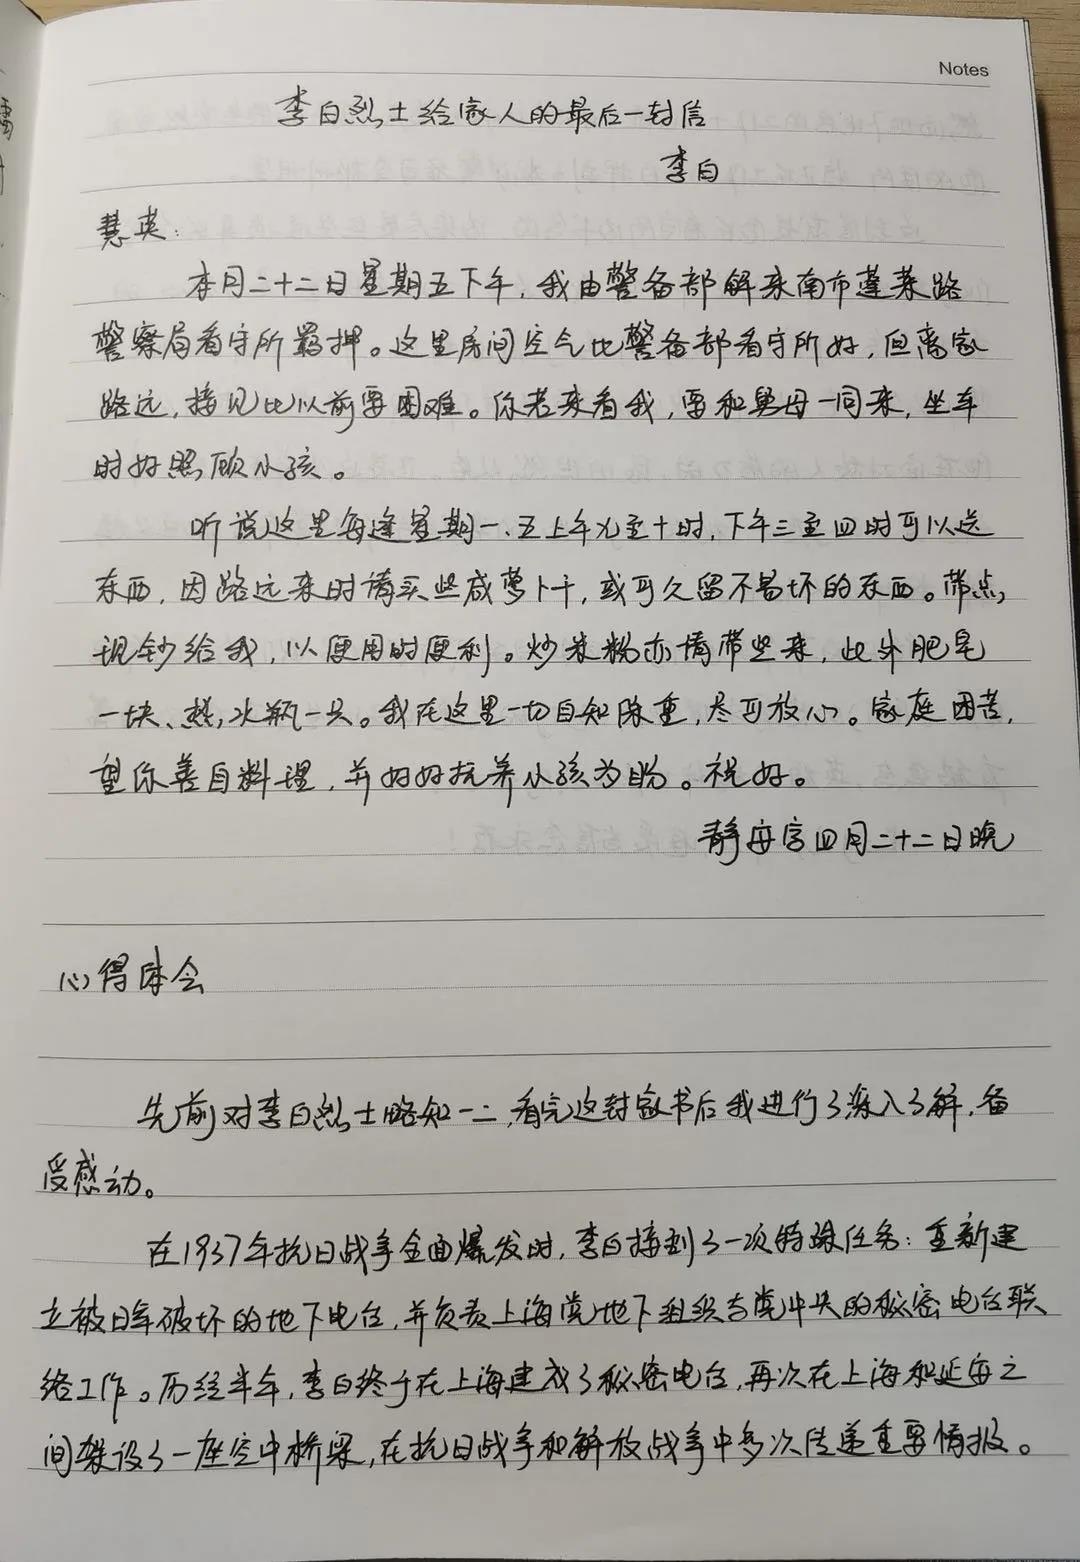 Notes
李白烈士给家人的最后一封信
李白
慧英：
本月二十二日星期五下午，我由警备部解来南市蓬莱路
警察局看守所羁押。这里房间空气比警备部看守所好，但离家
路远，接见比以前要困难。你若来看我，要和舅母一同来，坐车
时好照顾小孩。
听说这里每逢星期一、五上午九至十时，下午三至四时可以送
东西，因路远来时请买些咸萝卜干，或可久留不易坏的东西。带点
现钞给我，以便用时便利。炒米粉亦请带些来，此外肥皂
一块、热水瓶一只。我在这里一切自知保重，尽可放心。家庭困苦，
望你善自料理，并好好抚养小孩为盼。祝好。
静安字四月二十二日晚
心得体会
先前对李白烈士略知一二，看完这封家书后我进行了深入了解，备
受感动。
在1937年抗日战争全面爆发时，李白接到了一次特殊任务：重新建
立被日军破坏的地下电台，并负责上海党地下组织与党中央的秘密电台联
络工作。历经半年，李白终于在上海建成了秘密电台，再次在上海和延安之
间架设了一座空中桥梁，在抗日战争和解放战争中多次传递重要情报。